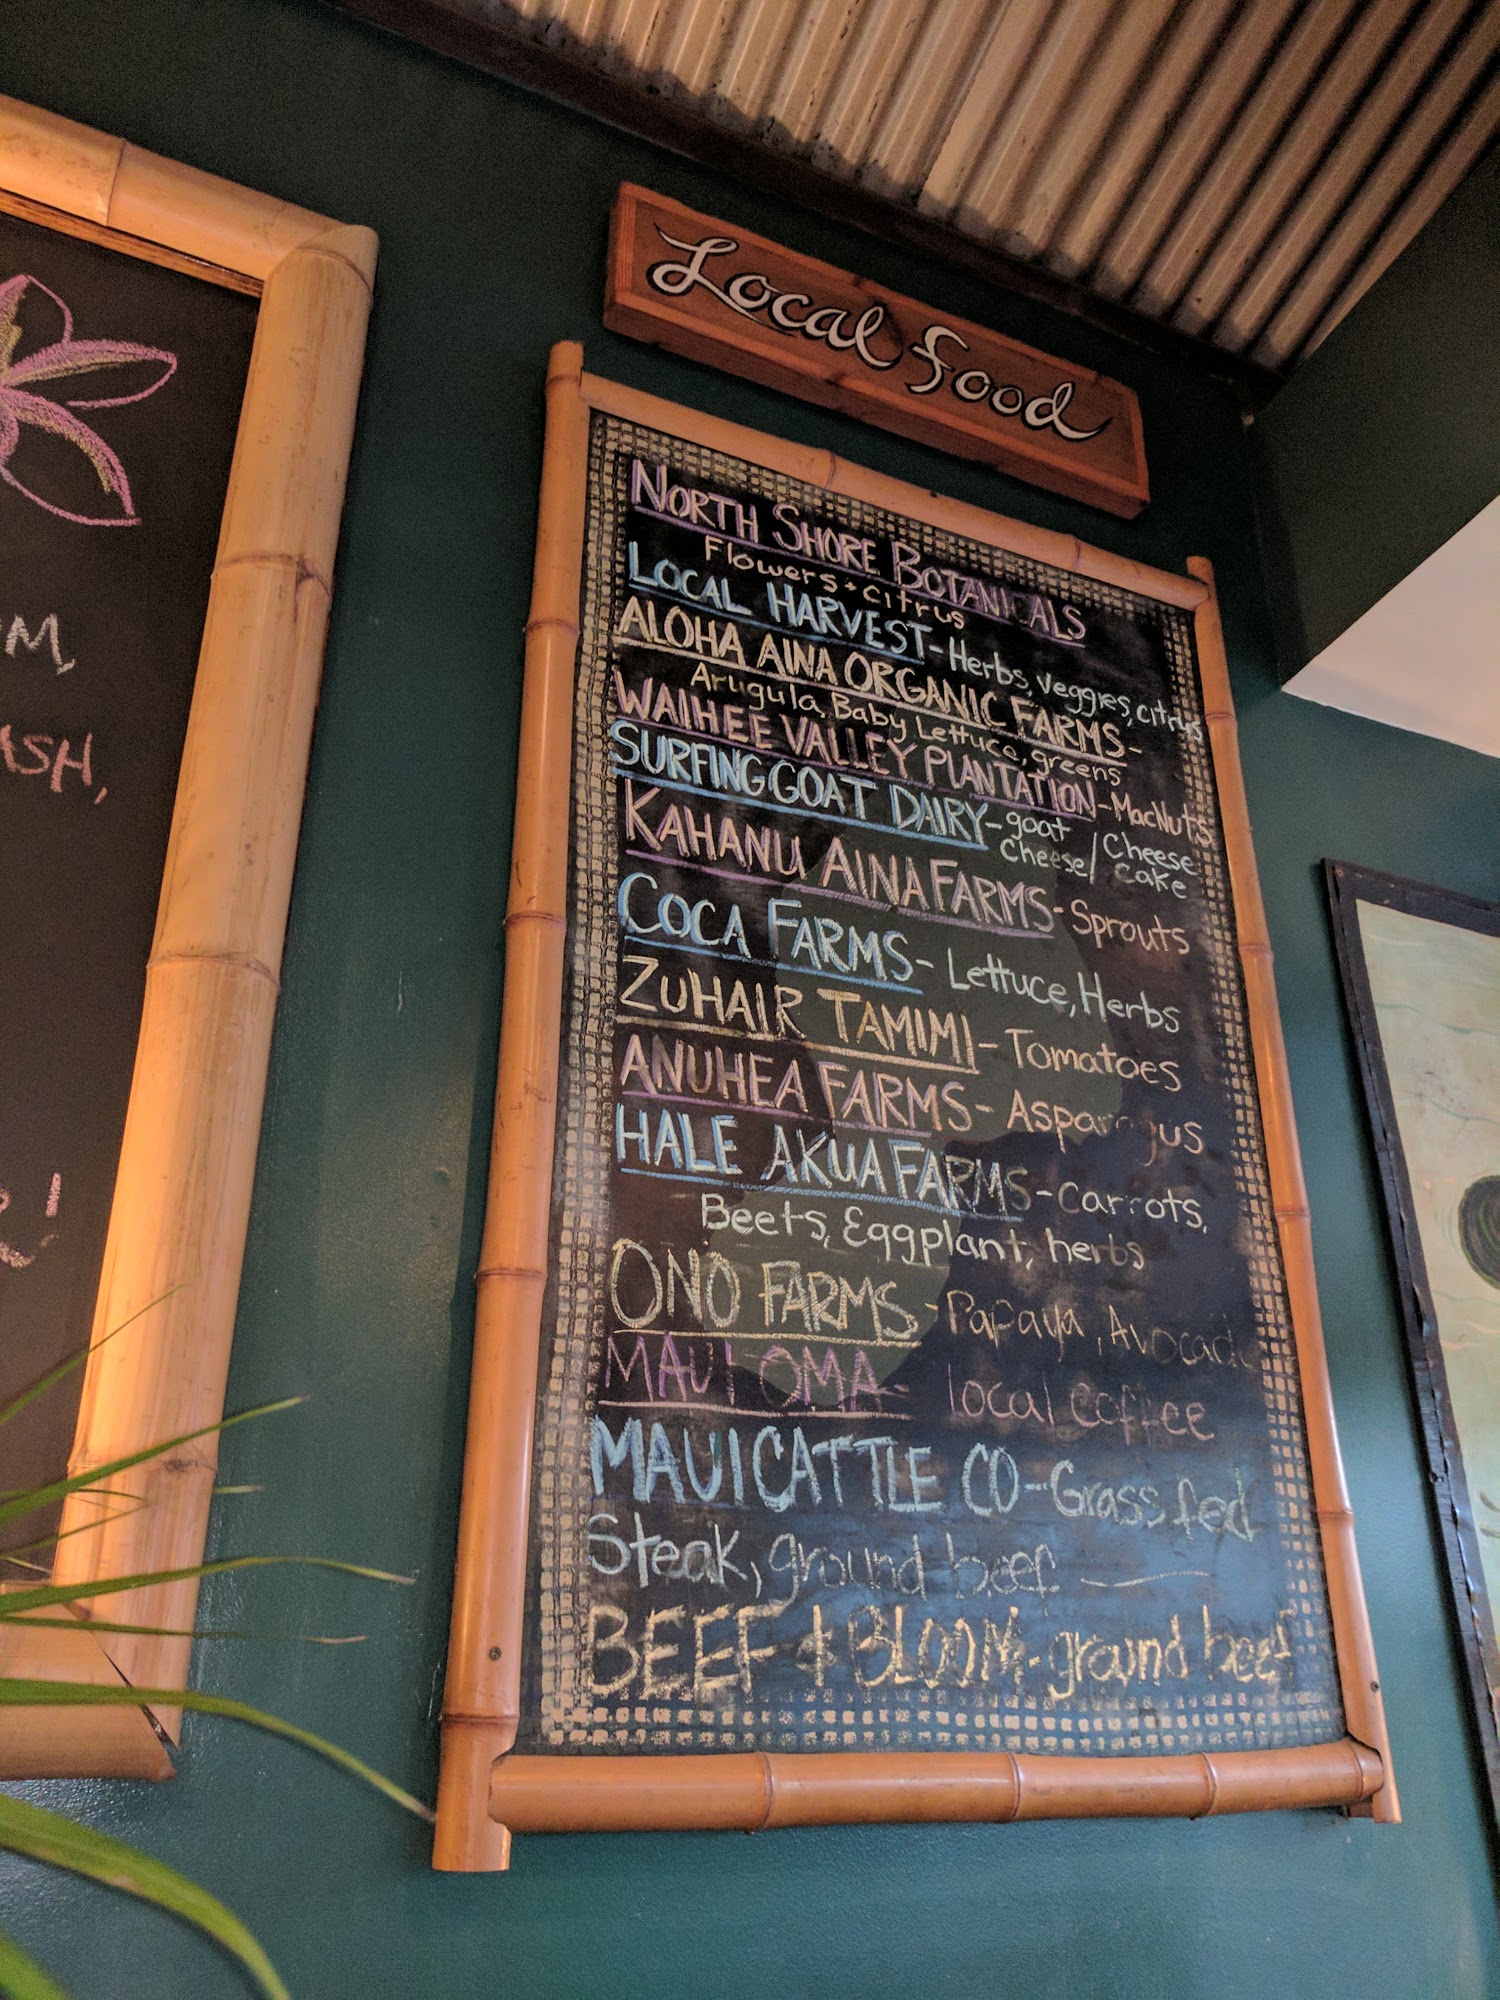 Local Food
NORTH SHORE BOTANICALS
Flowers + citrus
LOCAL HARVEST - Herbs, veggies, citrus
ALOHA AINA ORGANIC FARMS -
Arugula, Baby Lettuce, greens
WAIHEE VALLEY PLANTATION - MacNuts
SURFING GOAT DAIRY - goat cheese / Cheese cake
KAHANU AINA FARMS - Sprouts
COCA FARMS - Lettuce, Herbs
ZUHAIR TAMIMI - Tomatoes
ANUHEA FARMS - Asparagus
HALE AKUA FARMS - Carrots,
Beets, Eggplant, herbs
ONO FARMS - Papaya, Avocado
MAUI OMA - local coffee
MAUI CATTLE CO - Grass fed
Steak, ground beef
BEEF & BLOOM - ground beef